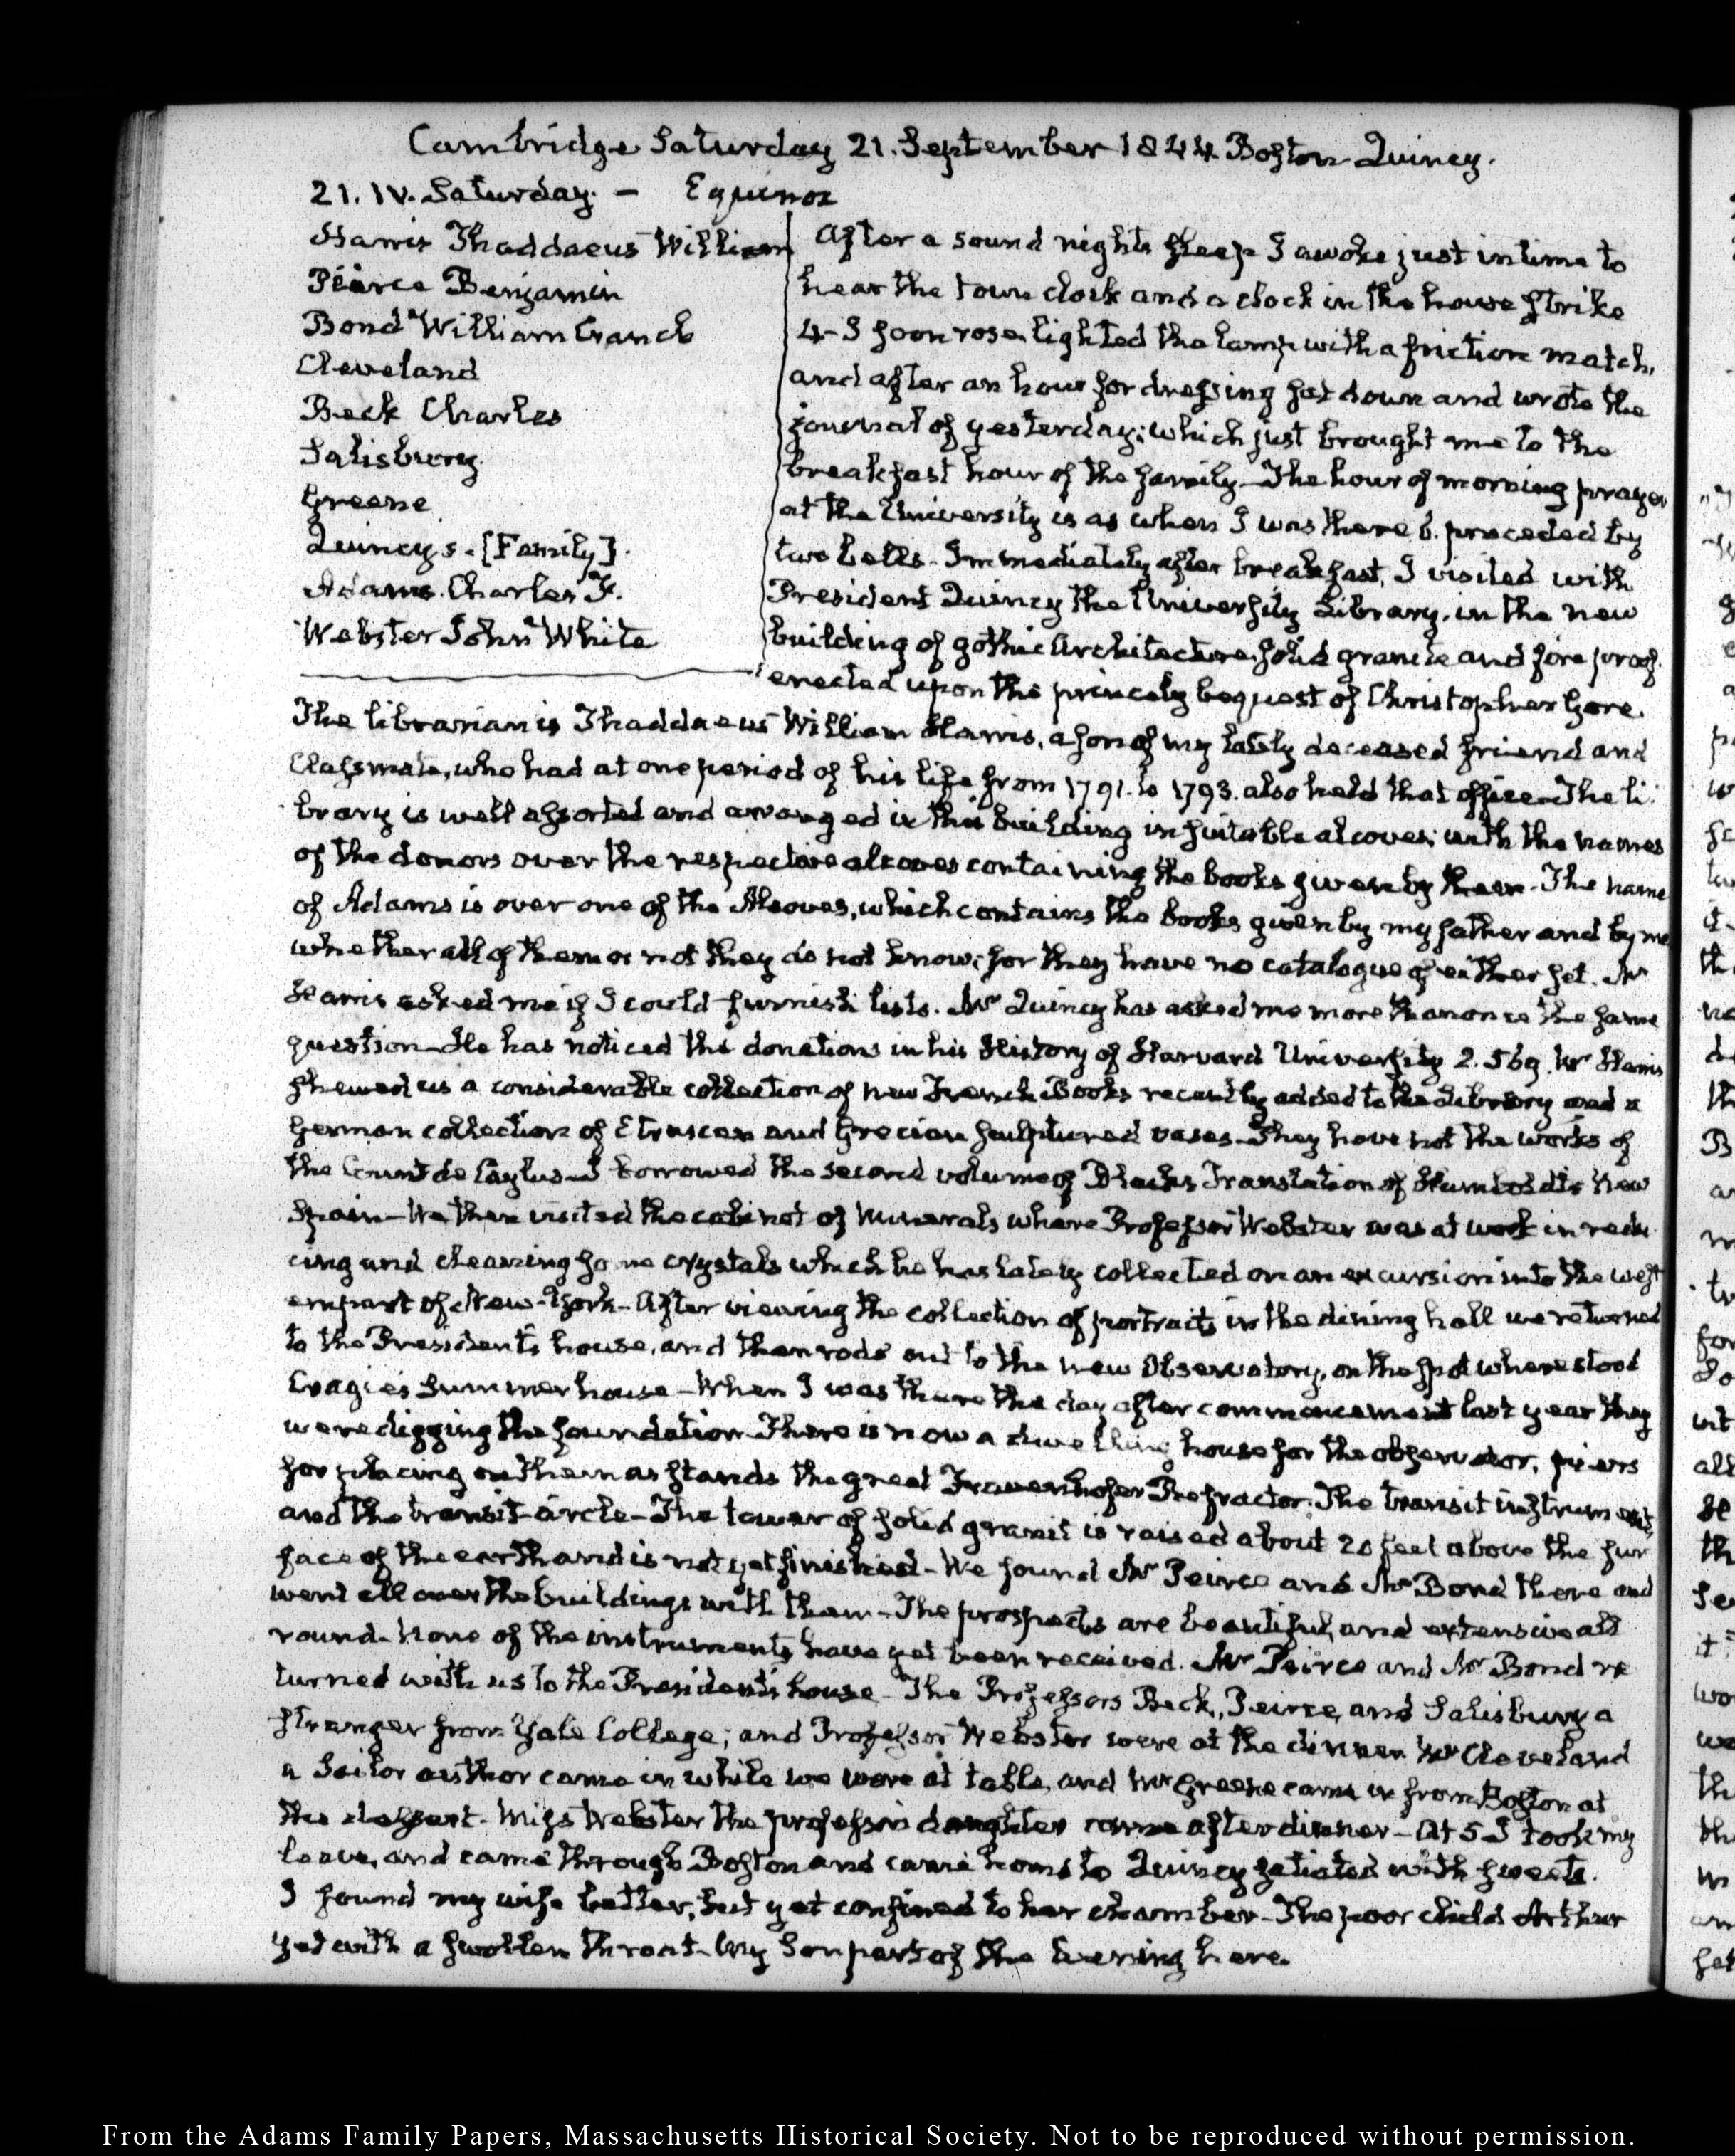 Cambridge Saturday 21. September 1844. Boston Quincy.
21. IV. Saturday. — Equinox
Harris Thaddaeus William
Peirce Benjamin
Bond William Cranch
Cleveland
Beck Charles
Salisbury
Greene
Quincy s. [Family].
Adams. Charles F.
Webster John White
After a sound nights sleep I awoke just in time to
hear the town clock and a clock in the house strike
4 – I soon rose lighted the lamp with a friction match,
and after an hour for dressing sat down and wrote the
journal of yesterday; which just brought me to the
breakfast hour of the family – The hour of morning prayer
at the University is as when I was there 6. preceded by
two bells – Immediately after breakfast, I visited with
President Quincy the University Library, in the new
building of gothic Architecture, solid granite and fire proof.
erected upon the princely bequest of Christopher Gore.
The librarian is Thaddaeus William Harris, a son of my lately deceased friend and
Classmate, who had at one period of his life from 1791. to 1793. also held that office – The li
brary is well assorted and arranged in this building in suitable alcoves; with the names
of the donors over the respective alcoves containing the books given by them – The name
of Adams is over one of the Alcoves, which contains the books given by my father and by me
whether all of them or not they do not know; for they have no catalogue of either set. Mr
Harris asked me if I could furnish lists. Mr Quincy has asked me more than once the same
question – He has noticed the donations in his History of Harvard University 2. 569. Mr Harris
shewed us a considerable collection of new French Books recently added to the Library and a
German collection of Etruscan and Grecian sculptured vases – They have not the works of
the Count de Caylus – I borrowed the second volume of Black's Translation of Humboldt's New
Spain – We then visited the cabinet of Minerals where Professor Webster was at work in redu
cing and cleansing some crystals which he has lately collected on an excursion into the west
ern part of New-York – After viewing the collection of portraits in the dining hall we returned
to the President's house, and then rode out to the new Observatory, on the spot where stood
Cragie's Summer house – When I was there the day after commencement last year they
were digging the foundation – There is now a dwelling house for the observator, piers
for placing on them as stands the great Frauenhofer Refractor. The transit instrument,
and the transit circle – The tower of solid granit is raised about 20 feet above the sur
face of the earth and is not yet finished – We found Mr Peirce and Mr Bond there and
went all over the buildings with them – The prospects are beautiful, and extensive all
round – None of the instruments have yet been received. Mr Peirce and Mr Bond re
turned with us to the President's house – The Professors Beck, Peirce, and Salisbury a
stranger from Yale College; and Professor Webster were at the dinner Mr Cleveland
a Sailor author came in while we were at table, and Mr Greene came in from Boston at
the dessert. Miss Webster the professors daughter came after dinner – At 5 I took my
leave, and came through Boston and came home to Quincy satiated with sweets.
I found my wife better, but yet confined to her chamber – The poor child Arthur
yet with a swollen throat – My Son part of the evening here.
From the Adams Family Papers, Massachusetts Historical Society. Not to be reproduced without permission.